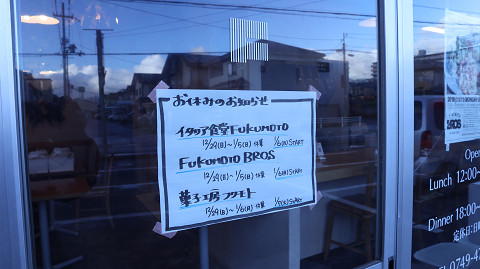 お休みのお知らせ
イタリア食堂 FUKUMOTO
12/29(日)〜1/5(日) 休業 1/6(月) START
FUKUMOTO BROS
12/29(日)〜1/5(日) 休業 1/6(月) START
菓子工房フクモト
12/29(日)〜1/6(月) 休業 1/7(火) START
BROS
Open
Lunch 12:00~
Dinner 18:00~
定休日:日
Tel 0749-4